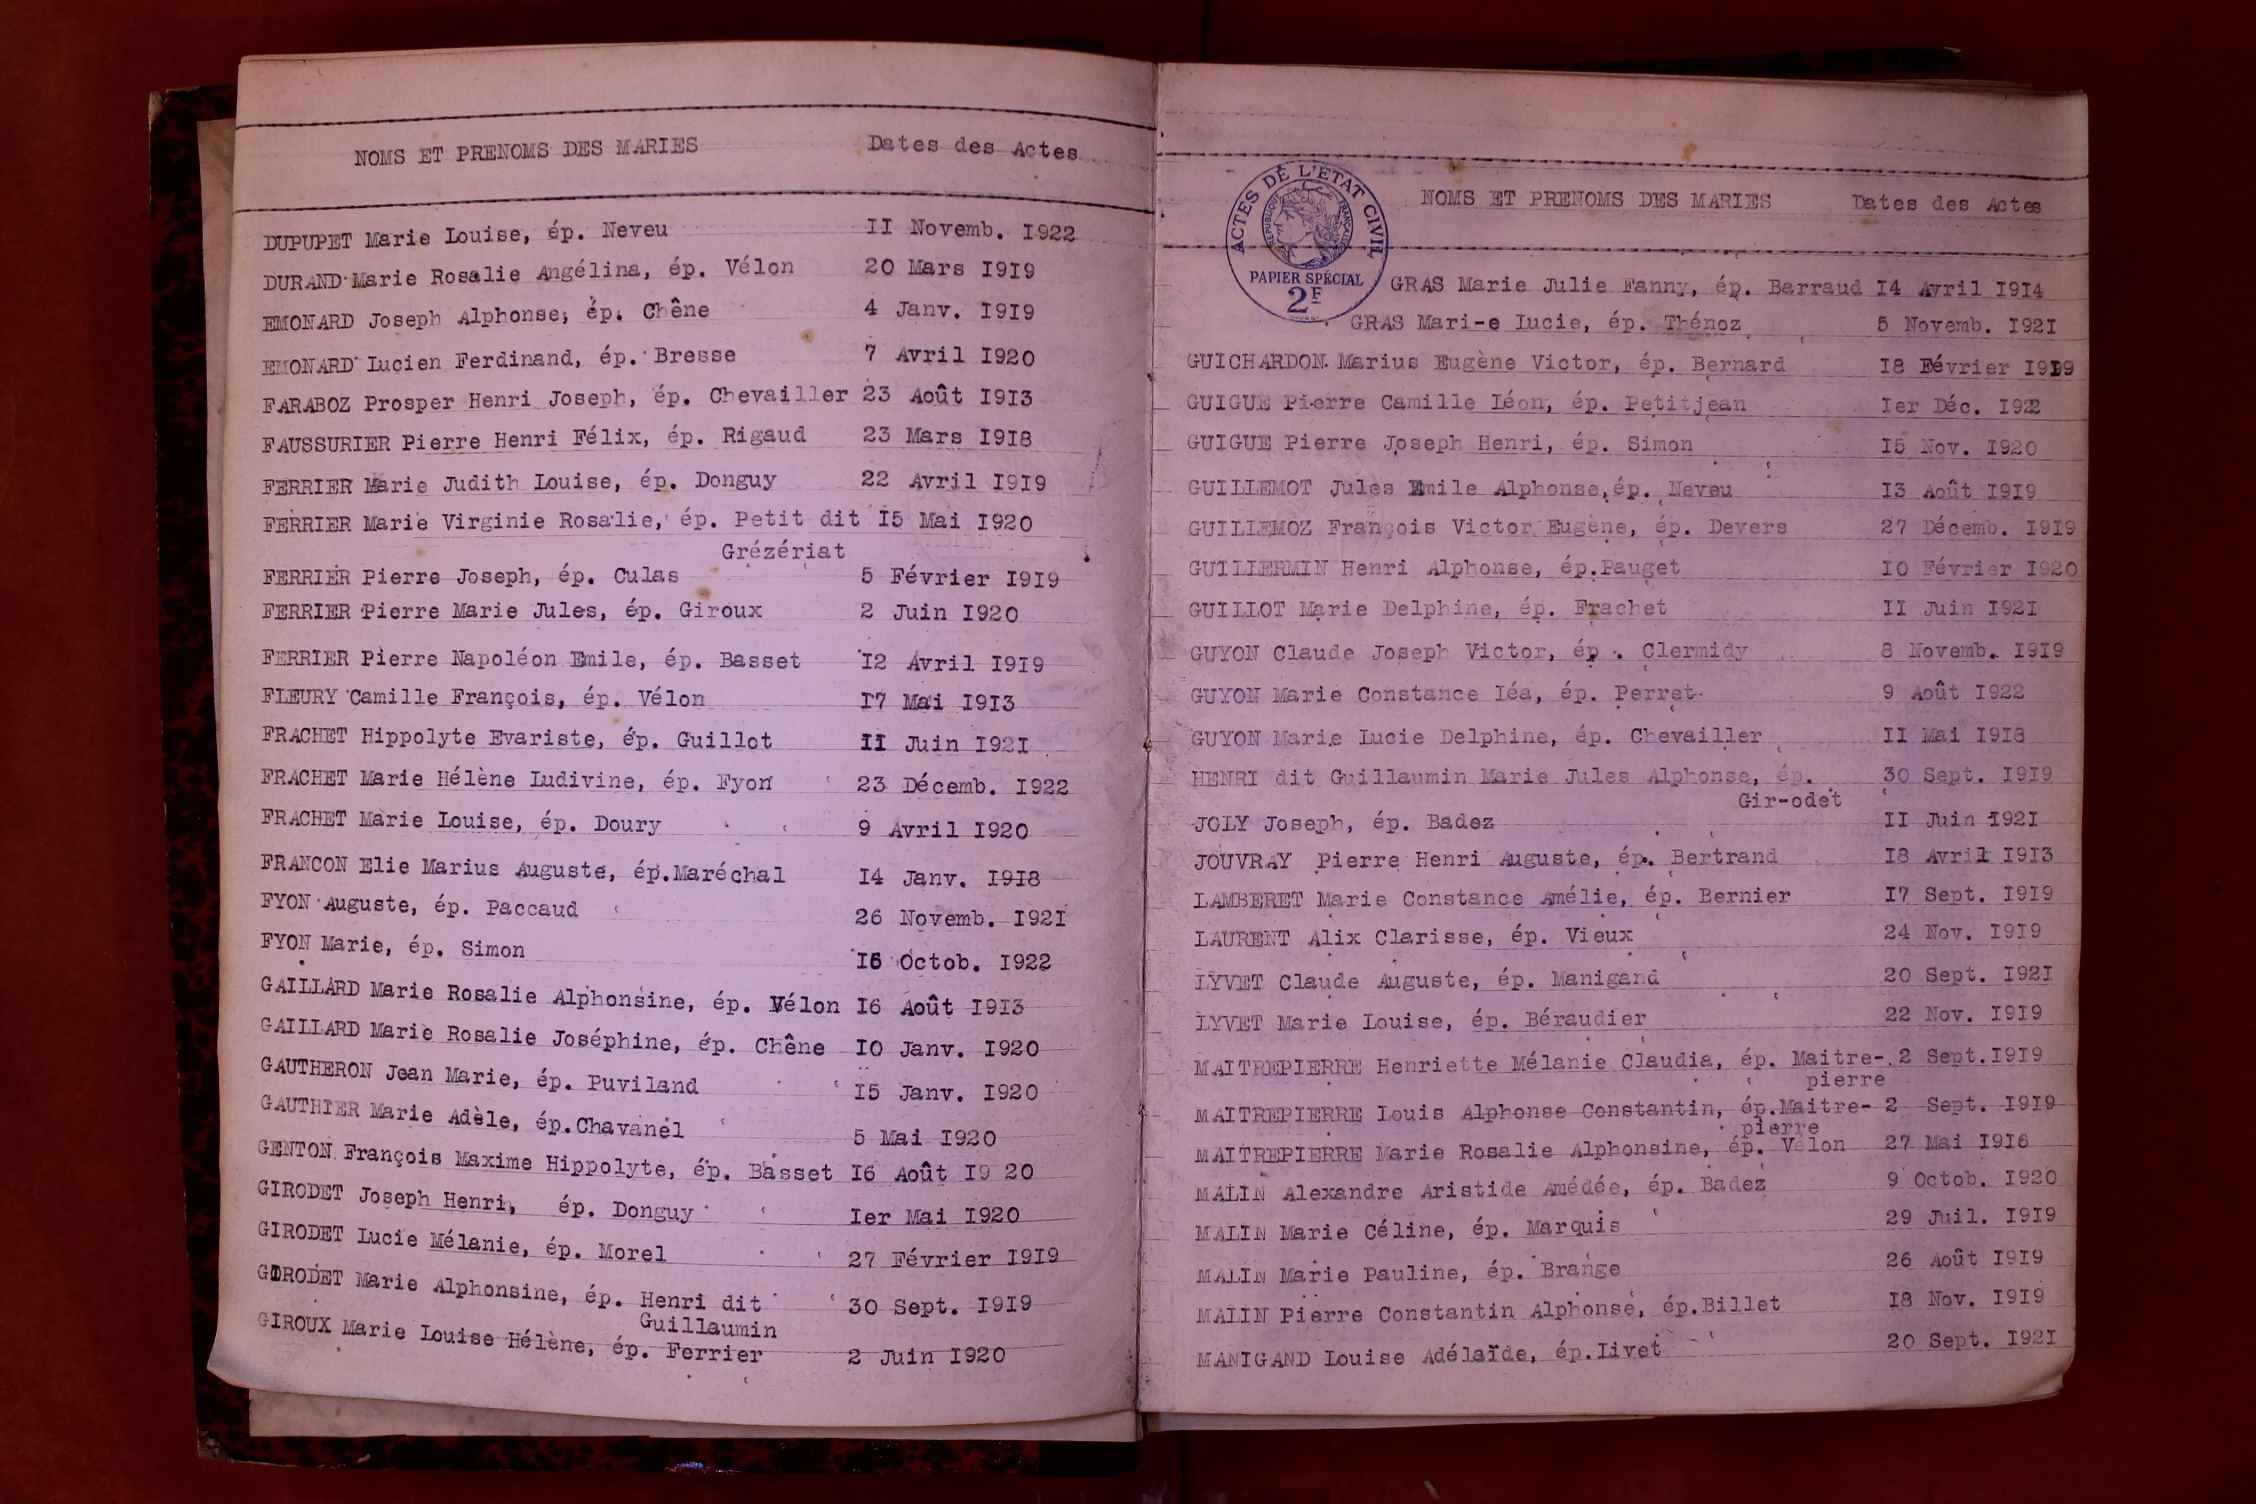 NOMS ET PRENOMS DES MARIES Dates des Actes
DUPUPET Marie Louise, ép. Neveu II Novemb. I922
DURAND Marie Rosalie Angélina, ép. Vélon 20 Mars I9I9
EMONARD Joseph Alphonse, ép. Chêne 4 Janv. I9I9
EMONARD Lucien Ferdinand, ép. Bresse 7 Avril I920
FARABOZ Prosper Henri Joseph, ép. Chevailler 23 Août I9I3
FAUSSURIER Pierre Henri Félix, ép. Rigaud 23 Mars I9I8
FERRIER Marie Judith Louise, ép. Donguy 22 Avril I9I9
FERRIER Marie Virginie Rosalie, ép. Petit dit I5 Mai I920
Grézériat
FERRIER Pierre Joseph, ép. Culas 5 Février I9I9
FERRIER Pierre Marie Jules, ép. Giroux 2 Juin I920
FERRIER Pierre Napoléon Emile, ép. Basset I2 Avril I9I9
FLEURY Camille François, ép. Vélon I7 Mai I9I3
FRACHET Hippolyte Evariste, ép. Guillot II Juin I92I
FRACHET Marie Hélène Ludivine, ép. Fyon 23 Décemb. I922
FRACHET Marie Louise, ép. Doury 9 Avril I920
FRANCON Elie Marius Auguste, ép.Maréchal I4 Janv. I9I8
FYON Auguste, ép. Paccaud 26 Novemb. I92I
FYON Marie, ép. Simon Octob. I922
GAILLARD Marie Rosalie Alphonsine, ép. Vélon I6 Août I9I3
GAILLARD Marie Rosalie Joséphine, ép. Chêne IO Janv. I920
GAUTHERON Jean Marie, ép. Puviland I5 Janv. I920
GAUTHIER Marie Adèle, ép.Chavanel 5 Mai I920
GENTON François Maxime Hippolyte, ép. Basset I6 Août I9 20
GIRODET Joseph Henri, ép. Donguy Ier Mai I920
GIRODET Lucie Mélanie, ép. Morel 27 Février I9I9
GIRODET Marie Alphonsine, ép. Henri dit 30 Sept. I9I9
Guillaumin
GIROUX Marie Louise Hélène, ép. Ferrier 2 Juin I920
ACTES DE L'ETAT CIVIL
REPUBLIQUE FRANÇAISE
PAPIER SPÉCIAL
2F
NOMS ET PRENOMS DES MARIES Dates des Actes
GRAS Marie Julie Fanny, ép. Barraud I4 Avril I9I4
GRAS Mari-e Lucie, ép. Thénoz 5 Novemb. I92I
GUICHARDON Marius Eugène Victor, ép. Bernard I8 Février I9I9
GUIGUE Pierre Camille Léon, ép. Petitjean Ier Déc. I922
GUIGUE Pierre Joseph Henri, ép. Simon I5 Nov. I920
GUILLEMOT Jules Emile Alphonse,ép. Neveu I3 Août I9I9
GUILLEMOZ François Victor Eugène, ép. Devers 27 Décemb. I9I9
GUILLERMIN Henri Alphonse, ép.Pauget IO Février I920
GUILLOT Marie Delphine, ép. Frachet II Juin I92I
GUYON Claude Joseph Victor, ép . Clermidy 8 Novemb. I9I9
GUYON Marie Constance Léa, ép. Perret 9 Août I922
GUYON Marie Lucie Delphine, ép. Chevailler II Mai I9I8
HENRI dit Guillaumin Marie Jules Alphonse, ép. 30 Sept. I9I9
Gir-odet
JOLY Joseph, ép. Badez II Juin I92I
JOUVRAY Pierre Henri Auguste, ép. Bertrand I8 Avril I9I3
LAMBERET Marie Constance Amélie, ép. Bernier I7 Sept. I9I9
LAURENT Alix Clarisse, ép. Vieux 24 Nov. I9I9
LYVET Claude Auguste, ép. Manigand 20 Sept. I92I
LYVET Marie Louise, ép. Béraudier 22 Nov. I9I9
MAITREPIERRE Henriette Mélanie Claudia, ép. Maitre- 2 Sept.I9I9
pierre
MAITREPIERRE Louis Alphonse Constantin, ép.Maitre- 2 Sept. I9I9
pierre
MAITREPIERRE Marie Rosalie Alphonsine, ép. Vélon 27 Mai I9I6
MALIN Alexandre Aristide Amédée, ép. Badez 9 Octob. I920
MALIN Marie Céline, ép. Marquis 29 Juil. I9I9
MALIN Marie Pauline, ép. Brange 26 Août I9I9
MALIN Pierre Constantin Alphonse, ép.Billet I8 Nov. I9I9
MANIGAND Louise Adélaïde, ép.Livet 20 Sept. I92I